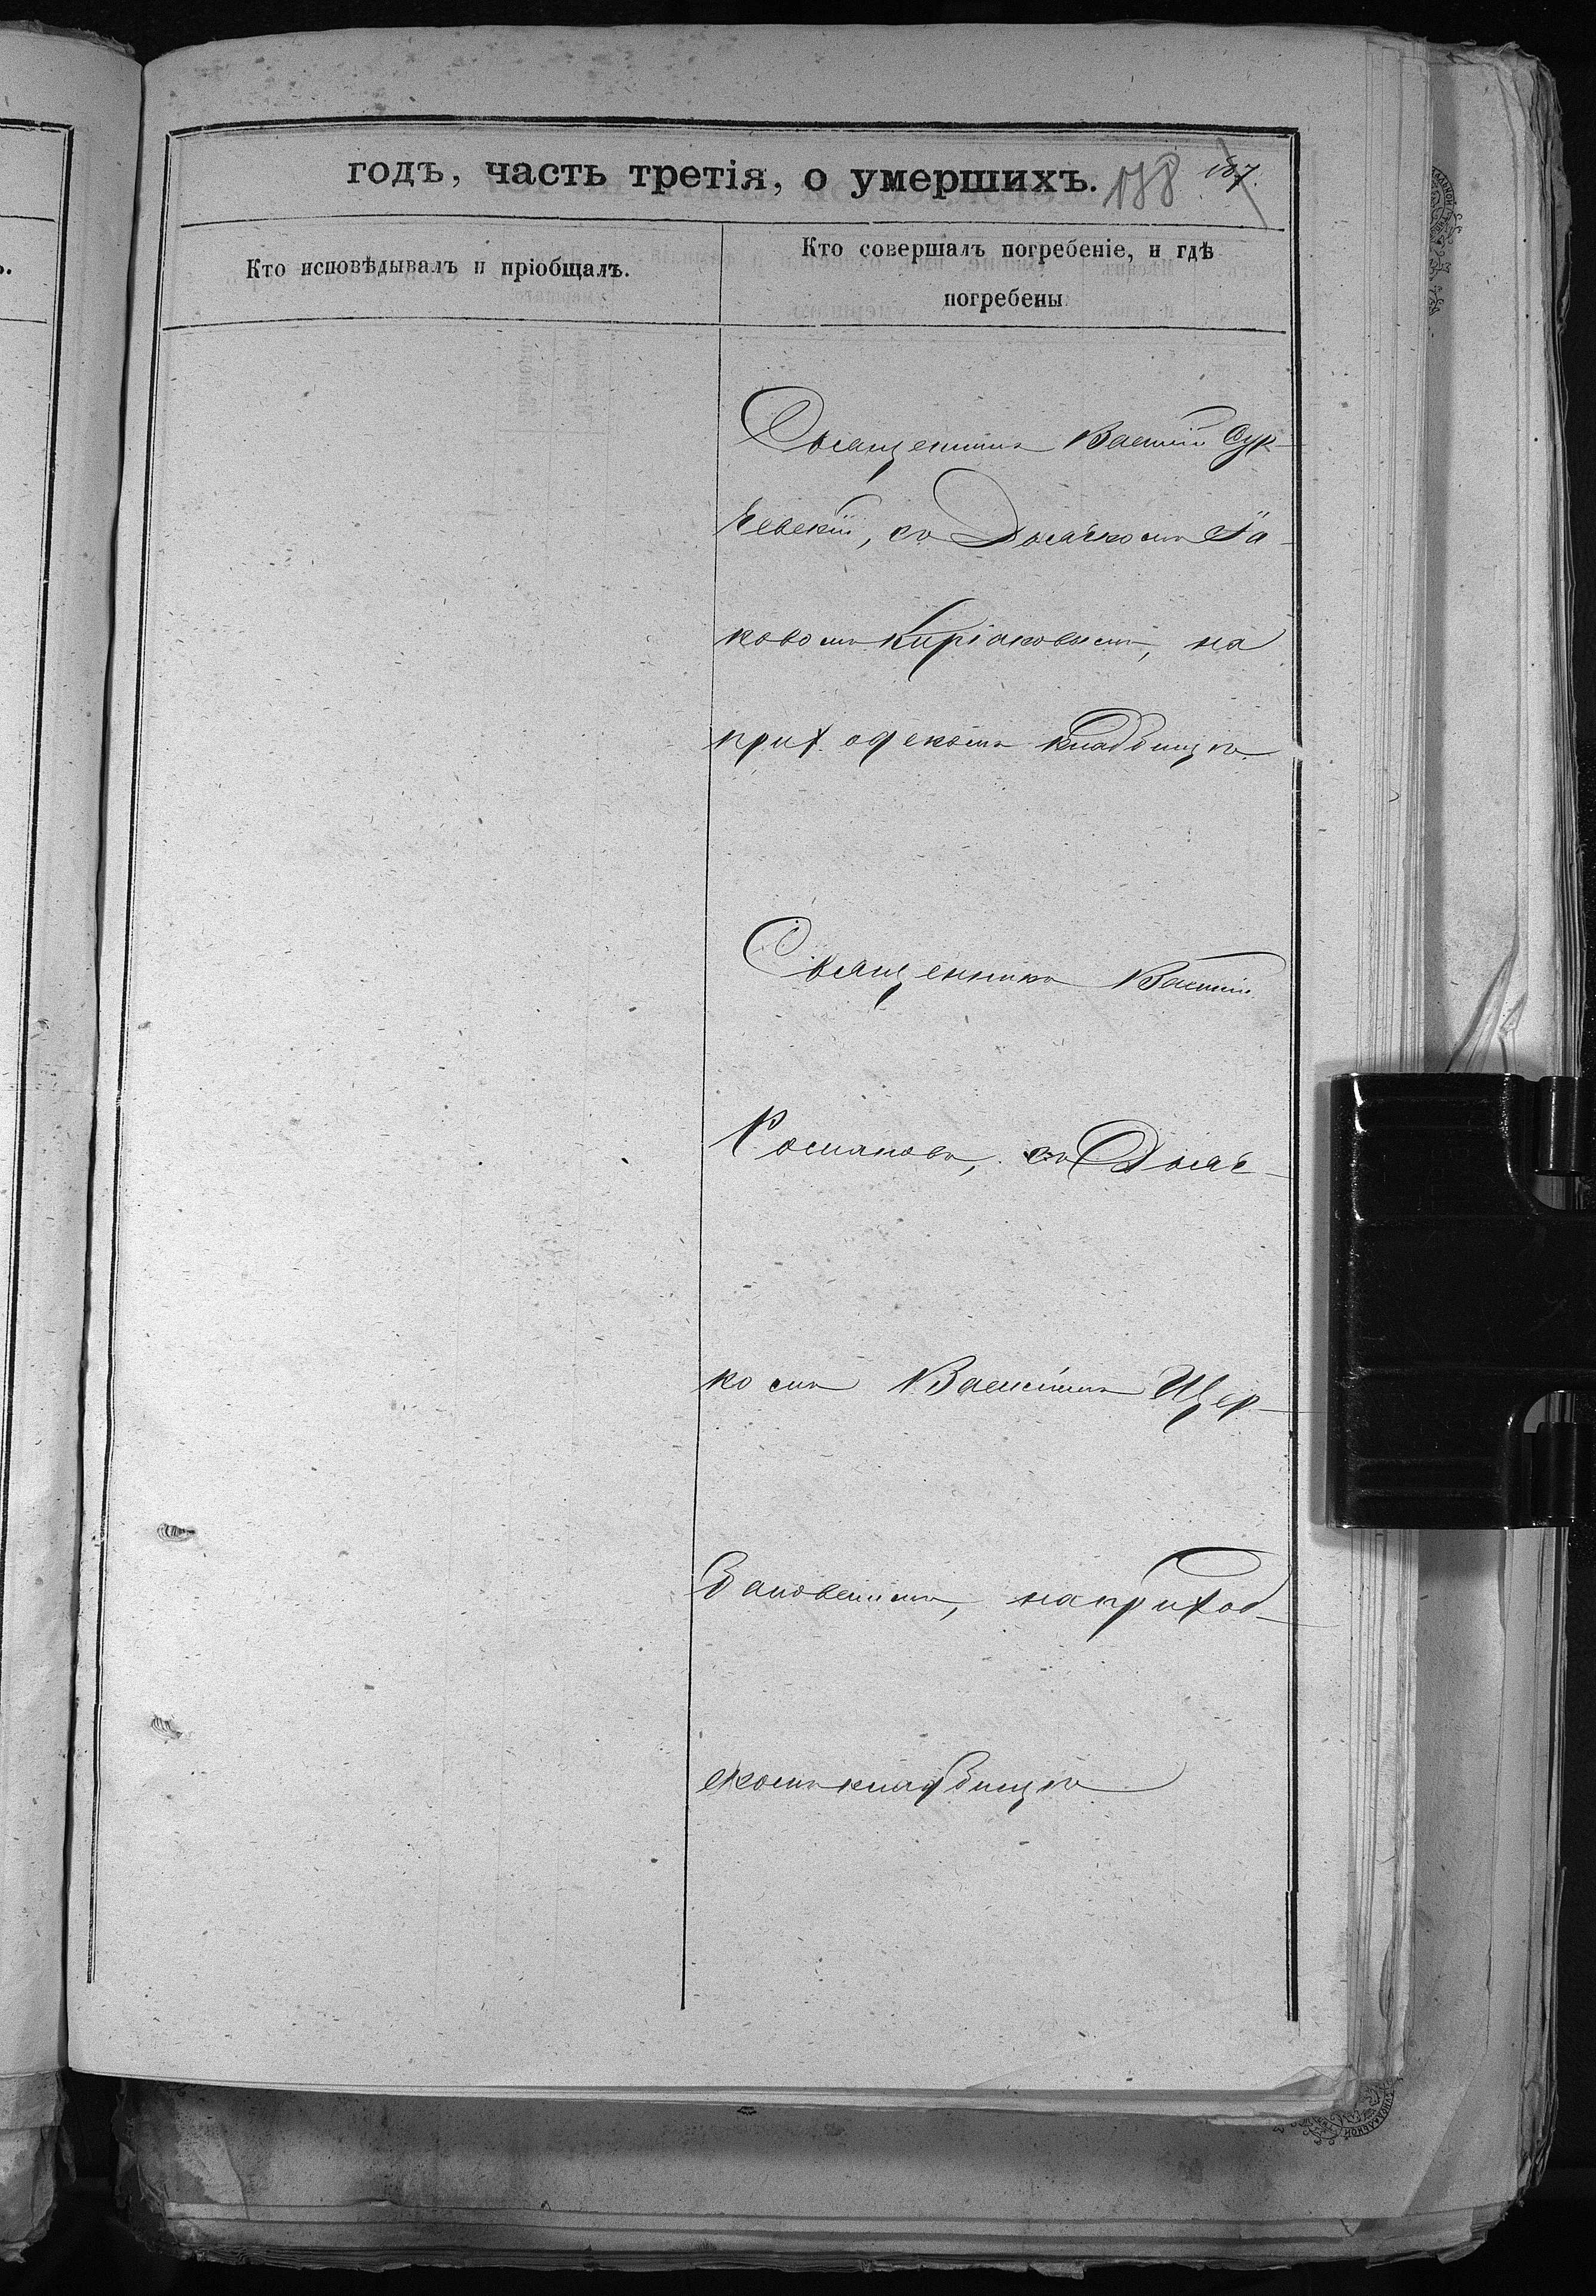 годъ, часть третія, о умершихъ. 188 187.
Кто исповѣдывалъ и пріобщалъ.
Кто совершалъ погребеніе, и гдѣ
погребены
Священникъ Василій Сур-
чевскій, съ Дьячкомъ Іа-
ковомъ Киріаковымъ, на
приходскомъ кладбищѣ.
Священникъ Василій
Романовъ, съ Дьяч-
комъ Василіемъ Щер-
бановскимъ, на приход-
скомъ кладбищѣ